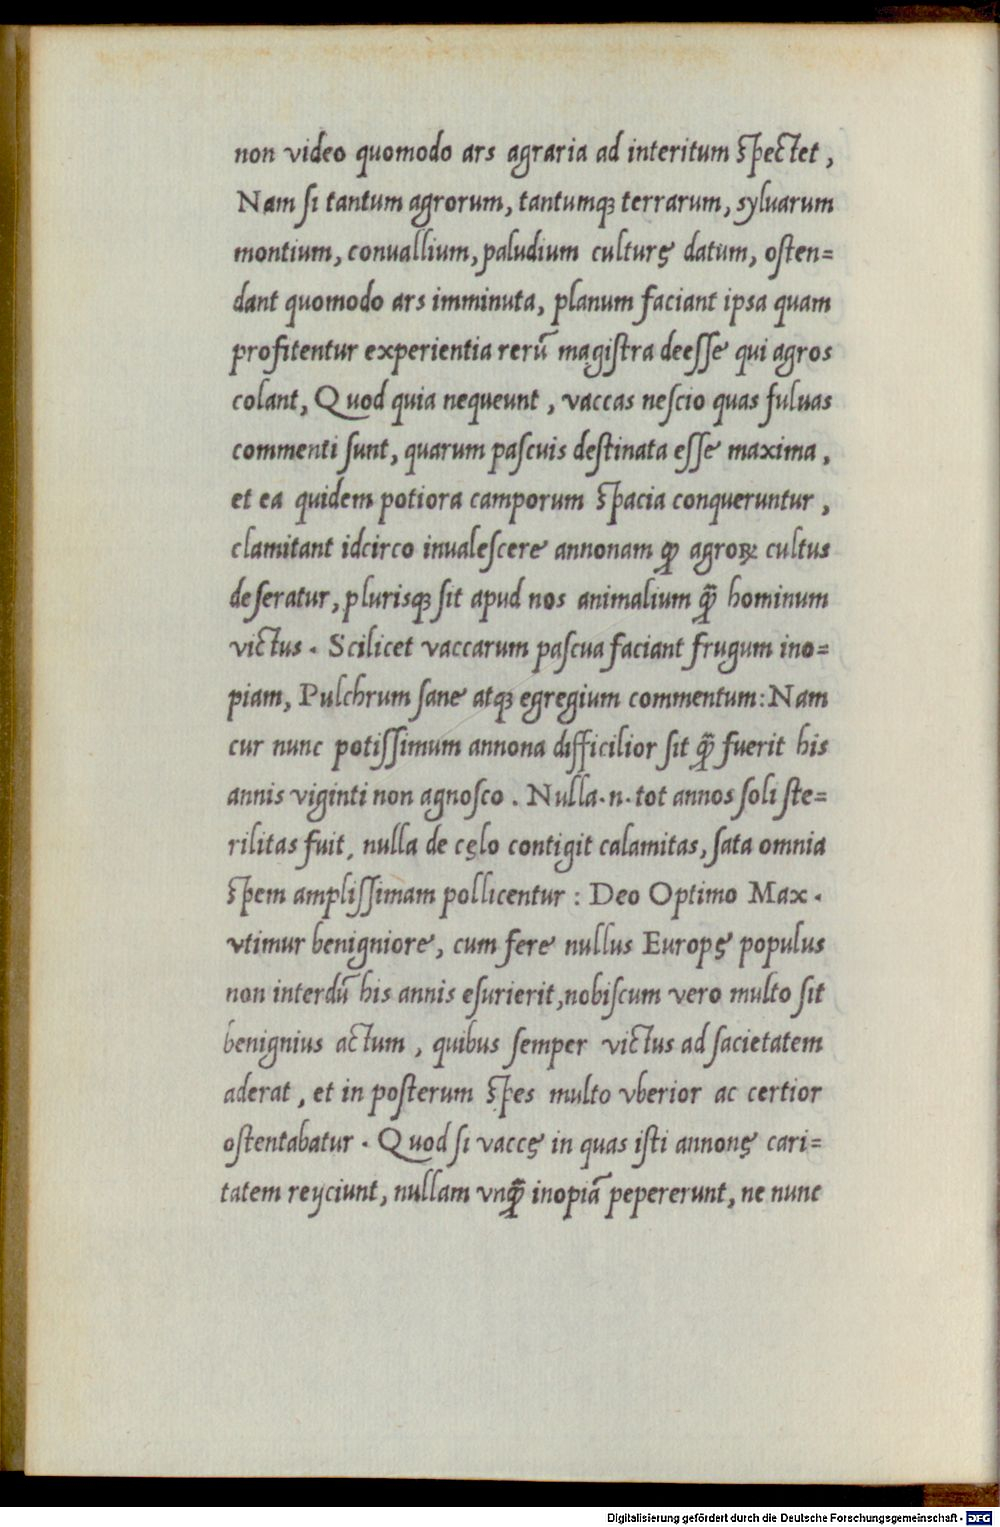 non video quomodo ars agraria ad interitum ſpectet,
Nam ſi tantum agrorum, tantumqꝫ terrarum, syluarum
montium, conuallium, paludium culturę datum, oſten=
dant quomodo ars imminuta, planum faciant ipsa quam
profitentur experientia rerū magiſtra deeſſe qui agros
colant, Quod quia nequeunt, vaccas neſcio quas fuluas
commenti ſunt, quarum paſcuis deſtinata eſſe maxima,
et ea quidem potiora camporum ſpacia conqueruntur,
clamitant idcirco inualeſcere annonam ꝙ agroꝝ cultus
deſeratur, plurisqꝫ ſit apud nos animalium q̄ꝫ hominum
victus. Scilicet vaccarum paſcua faciant frugum ino=
piam, Pulchrum ſane atqꝫ egregium commentum: Nam
cur nunc potiſſimum annona difficilior ſit q̄ꝫ fuerit his
annis viginti non agnoſco. Nulla.n.tot annos ſoli ſte=
rilitas fuit, nulla de cęlo contigit calamitas, ſata omnia
ſpem ampliſſimam pollicentur: Deo Optimo Max.
vtimur benigniore, cum fere nullus Europę populus
non interdū his annis eſurierit, nobiſcum vero multo ſit
benignius actum, quibus ſemper victus ad ſacietatem
aderat, et in poſterum ſpes multo vberior ac certior
oſtentabatur. Quod ſi vaccę in quas iſti annonę cari=
tatem reijciunt, nullam vnq̄ꝫ inopiā pepererunt, ne nunc
Digitalisierung gefördert durch die Deutsche Forschungsgemeinschaft - DFG